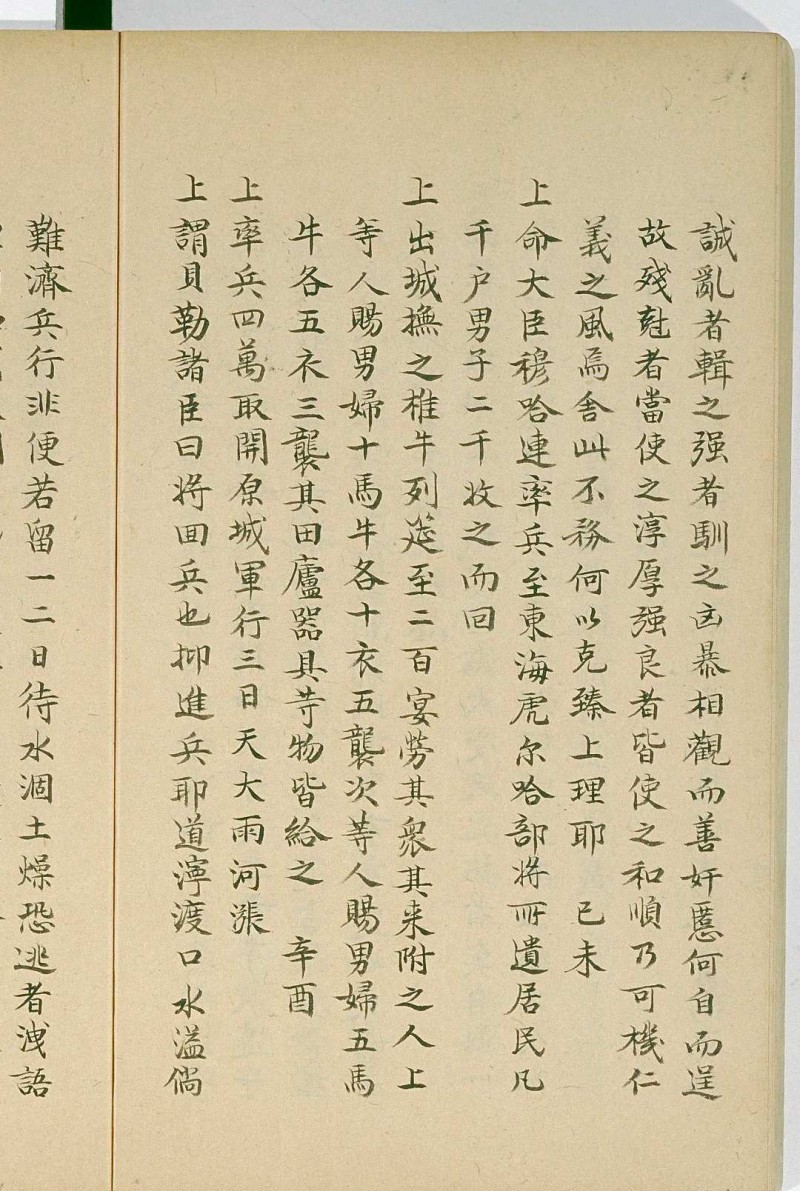 誠亂者輯之强者馴之凶暴相觀而善奸慝何自而逞
故殘尅者當使之淳厚强良者皆使之和順乃可機仁
義之風焉舍此不務何以克臻上理耶　己未
上命大臣穆哈連率兵至東海虎尔哈部将所遺居民凡
千户男子二千收之而回
上出城撫之椎牛列筵至二百宴勞其衆其来附之人上
等人賜男婦十馬牛各十衣五襲次等人賜男婦五馬
牛各五衣三襲其田廬器具等物皆給之　辛酉
上率兵四萬取開原城軍行三日天大雨河漲
上謂貝勒諸臣曰将回兵也抑進兵耶道濘渡口水溢倘
難濟兵行非便若留一二日待水涸土燥恐逃者洩語